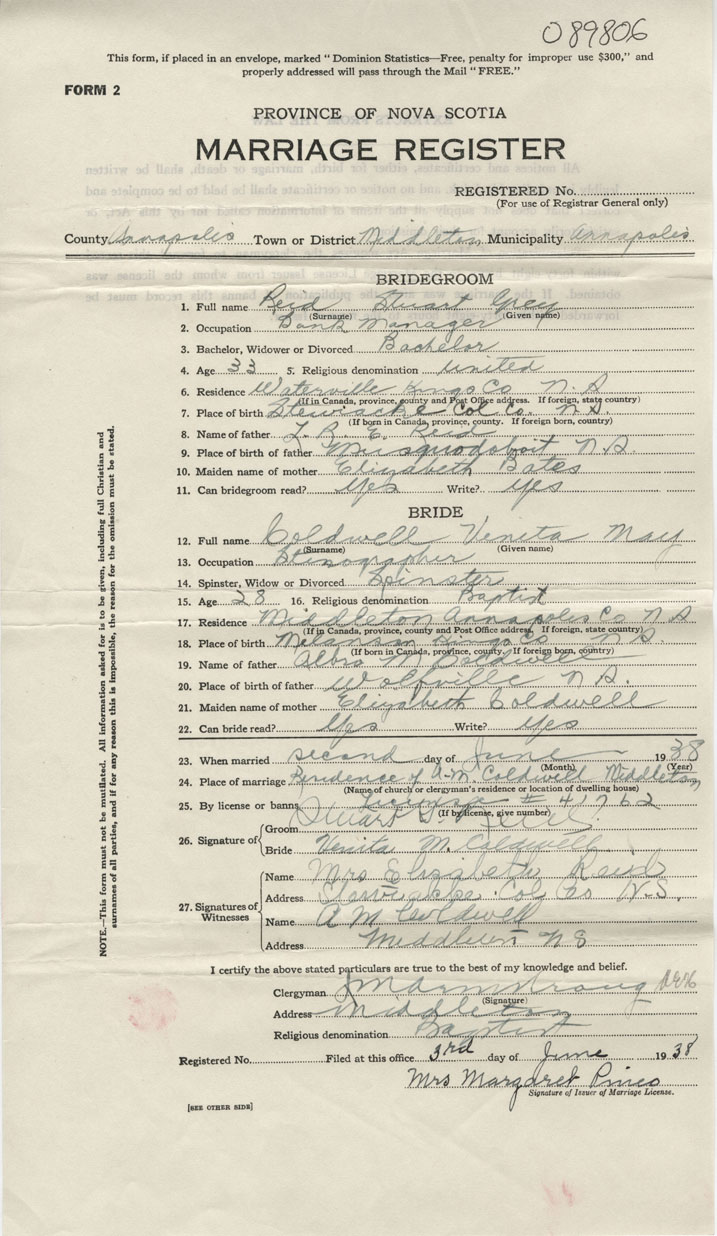 089806
This form, if placed in an envelope, marked "Dominion Statistics—Free, penalty for improper use $300," and
properly addressed will pass through the Mail "FREE."
FORM 2
PROVINCE OF NOVA SCOTIA
MARRIAGE REGISTER
REGISTERED No.
(For use of Registrar General only)
County Annapolis Town or District Middleton Municipality Annapolis
BRIDEGROOM
1. Full name Reid Stuart Grey
(Surname) (Given name)
2. Occupation Bank Manager
3. Bachelor, Widower or Divorced Bachelor
4. Age 33 5. Religious denomination United
6. Residence Waterville Kings Co N.S
(If in Canada, province, county and Post Office address. If foreign, state country)
7. Place of birth Stewiacke Col. Co. N.S.
(If born in Canada, province, county. If foreign born, country)
8. Name of father L. R. E. Reid
9. Place of birth of father Musquodoboit N.S.
10. Maiden name of mother Elizabeth Bates
11. Can bridegroom read? Yes Write? Yes
BRIDE
12. Full name Coldwell Venita May
(Surname) (Given name)
13. Occupation Stenographer
14. Spinster, Widow or Divorced Spinster
15. Age 28 16. Religious denomination Baptist
17. Residence Middleton Annapolis Co N S
(If in Canada, province, county and Post Office address. If foreign, state country)
18. Place of birth Kings Co N.S.
(If born in Canada, province, county. If foreign born, country)
19. Name of father M. Coldwell
20. Place of birth of father Wolfville N.S.
21. Maiden name of mother Elizabeth Coldwell
22. Can bride read? Yes Write? Yes
23. When married second day of June 1938
(Month) (Year)
24. Place of marriage Residence of A. M. Coldwell Middleton
(Name of church or clergyman's residence or location of dwelling house)
25. By license or banns License # 41762
(If by license, give number)
26. Signature of Groom Stuart G. Reid
Bride Venita M. Coldwell
27. Signatures of Witnesses Name Mrs Elizabeth Reid
Address Stewiacke Col Co N.S.
Name A M Coldwell
Address Middleton N S
I certify the above stated particulars are true to the best of my knowledge and belief.
Clergyman Armstrong
(Signature)
Address Middleton
Religious denomination Baptist
Registered No. Filed at this office 3rd day of June 1938
Mrs Margaret
Signature of Issuer of Marriage License.
[SEE OTHER SIDE]
NOTE.—This form must not be mutilated. All information asked for is to be given, including full Christian and
surnames of all parties, and if for any reason this is impossible, the reason for the omission must be stated.